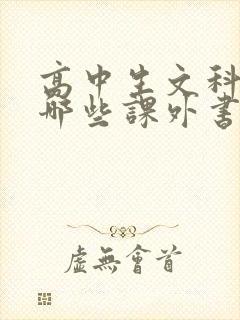 高中生文科
哪些課外書
虛無會首